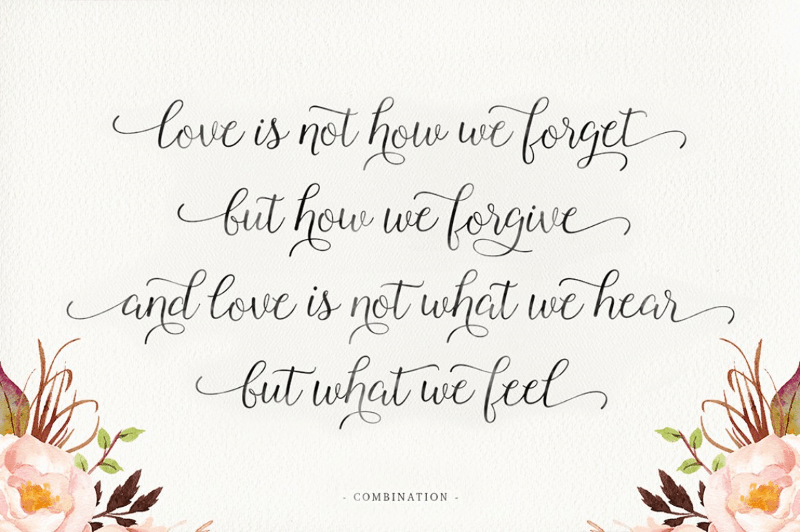 love is not how we forget
but how we forgive
and love is not what we hear
but what we feel
- COMBINATION -